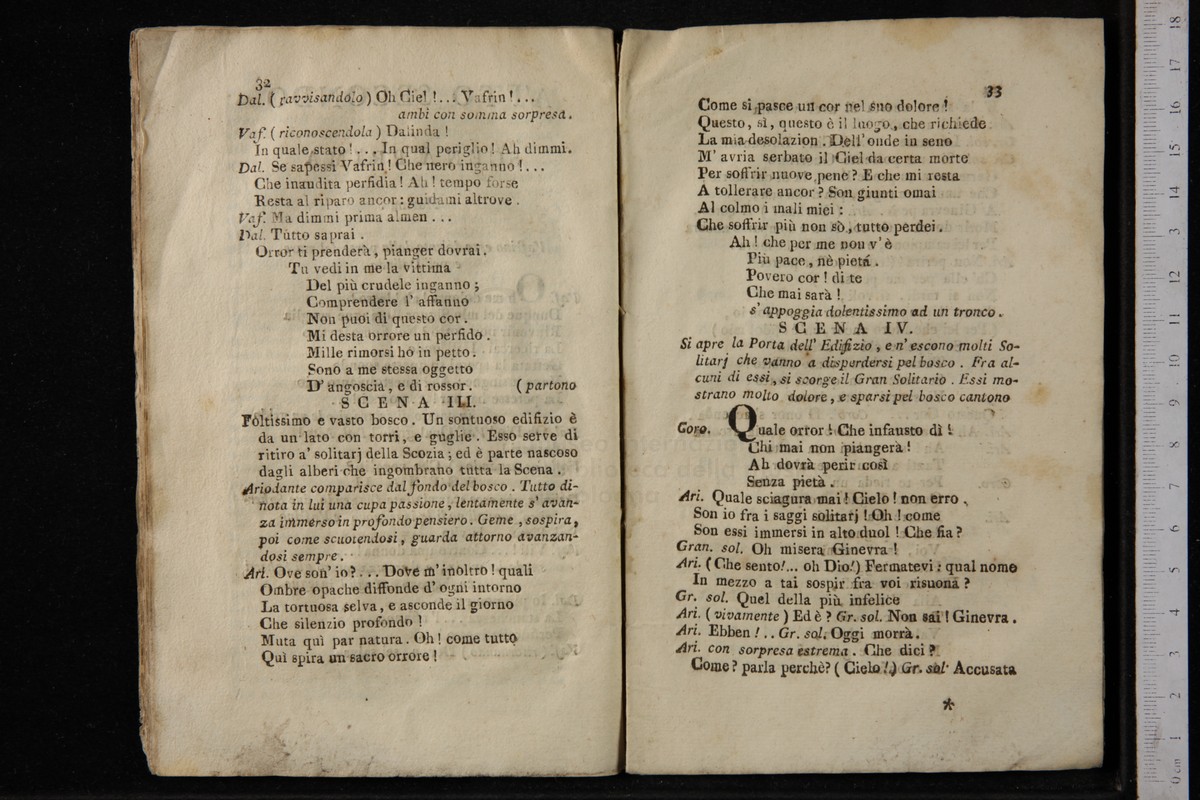 32
Dal. ( ravvisandolo ) Oh Ciel !... Vafrin !...
ambi con somma sorpresa.
Vaf. ( riconoscendola ) Dalinda !
In quale stato !... In qual periglio ! Ah dimmi.
Dal. Se sapessi Vafrin ! Che nero inganno !...
Che inaudita perfidia ! Ah ! tempo forse
Resta al riparo ancor : guidami altrove .
Vaf. Ma dimmi prima almen . ..
Dal. Tutto saprai .
Orror ti prenderà , pianger dovrai .
Tu vedi in me la vittima
Del più crudele inganno ;
Comprendere l' affanno
Non puoi di questo cor .
Mi desta orrore un perfido .
Mille rimorsi hò in petto .
Sono a me stessa oggetto
D' angoscia , e di rossor . ( partono
SCENA III.
Foltissimo e vasto bosco . Un sontuoso edifizio è
da un lato con torri , e guglie . Esso serve di
ritiro a' solitarj della Scozia ; ed è parte nascoso
dagli alberi che ingombrano tutta la Scena .
Ariodante comparisce dal fondo del bosco . Tutto di-
nota in lui una cupa passione , lentamente s' avan-
za immerso in profondo pensiero . Geme , sospira ,
poi come scuotendosi , guarda attorno avanzan-
dosi sempre .
Ari. Ove son' io ? ... Dove m' inoltro ! quali
Ombre opache diffonde d' ogni intorno
La tortuosa selva , e asconde il giorno
Che silenzio profondo !
Muta quì par natura . Oh ! come tutto
Quì spira un sacro orrore !
33
Come si pasce un cor nel suo dolore !
Questo , sì , questo è il luogo , che richiede
La mia desolazion . Dell' onde in seno
M' avria serbato il Ciel da certa morte
Per soffrir nuove pene ? E che mi resta
A tollerare ancor ? Son giunti omai
Al colmo i mali miei :
Che soffrir più non sò , tutto perdei .
Ah ! che per me non v' è
Più pace , nè pietá .
Povero cor ! di te
Che mai sarà !
s' appoggia dolentissimo ad un tronco .
SCENA IV.
Si apre la Porta dell' Edifizio , e n' escono molti So-
litarj che vanno a disperdersi pel bosco . Fra al-
cuni di essi , si scorge il Gran Solitario . Essi mo-
strano molto dolore , e sparsi pel bosco cantono
Coro. Quale orror ! Che infausto dì !
Chi mai non piangerà !
Ah dovrà perir così
Senza pietà .
Ari. Quale sciagura mai ! Cielo ! non erro ,
Son io fra i saggi solitarj ! Oh ! come
Son essi immersi in alto duol ! Che fia ?
Gran. sol. Oh misera Ginevra !
Ari. ( Che sento!... oh Dio!) Fermatevi : qual nome
In mezzo a tai sospir fra voi risuona ?
Gr. sol. Quel della più infelice
Ari. ( vivamente ) Ed è ? Gr. sol. Non sai ! Ginevra .
Ari. Ebben ! .. Gr. sol. Oggi morrà .
Ari. con sorpresa estrema . Che dici ?
Come ? parla perchè ? ( Cielo !) Gr. sol. Accusata
*